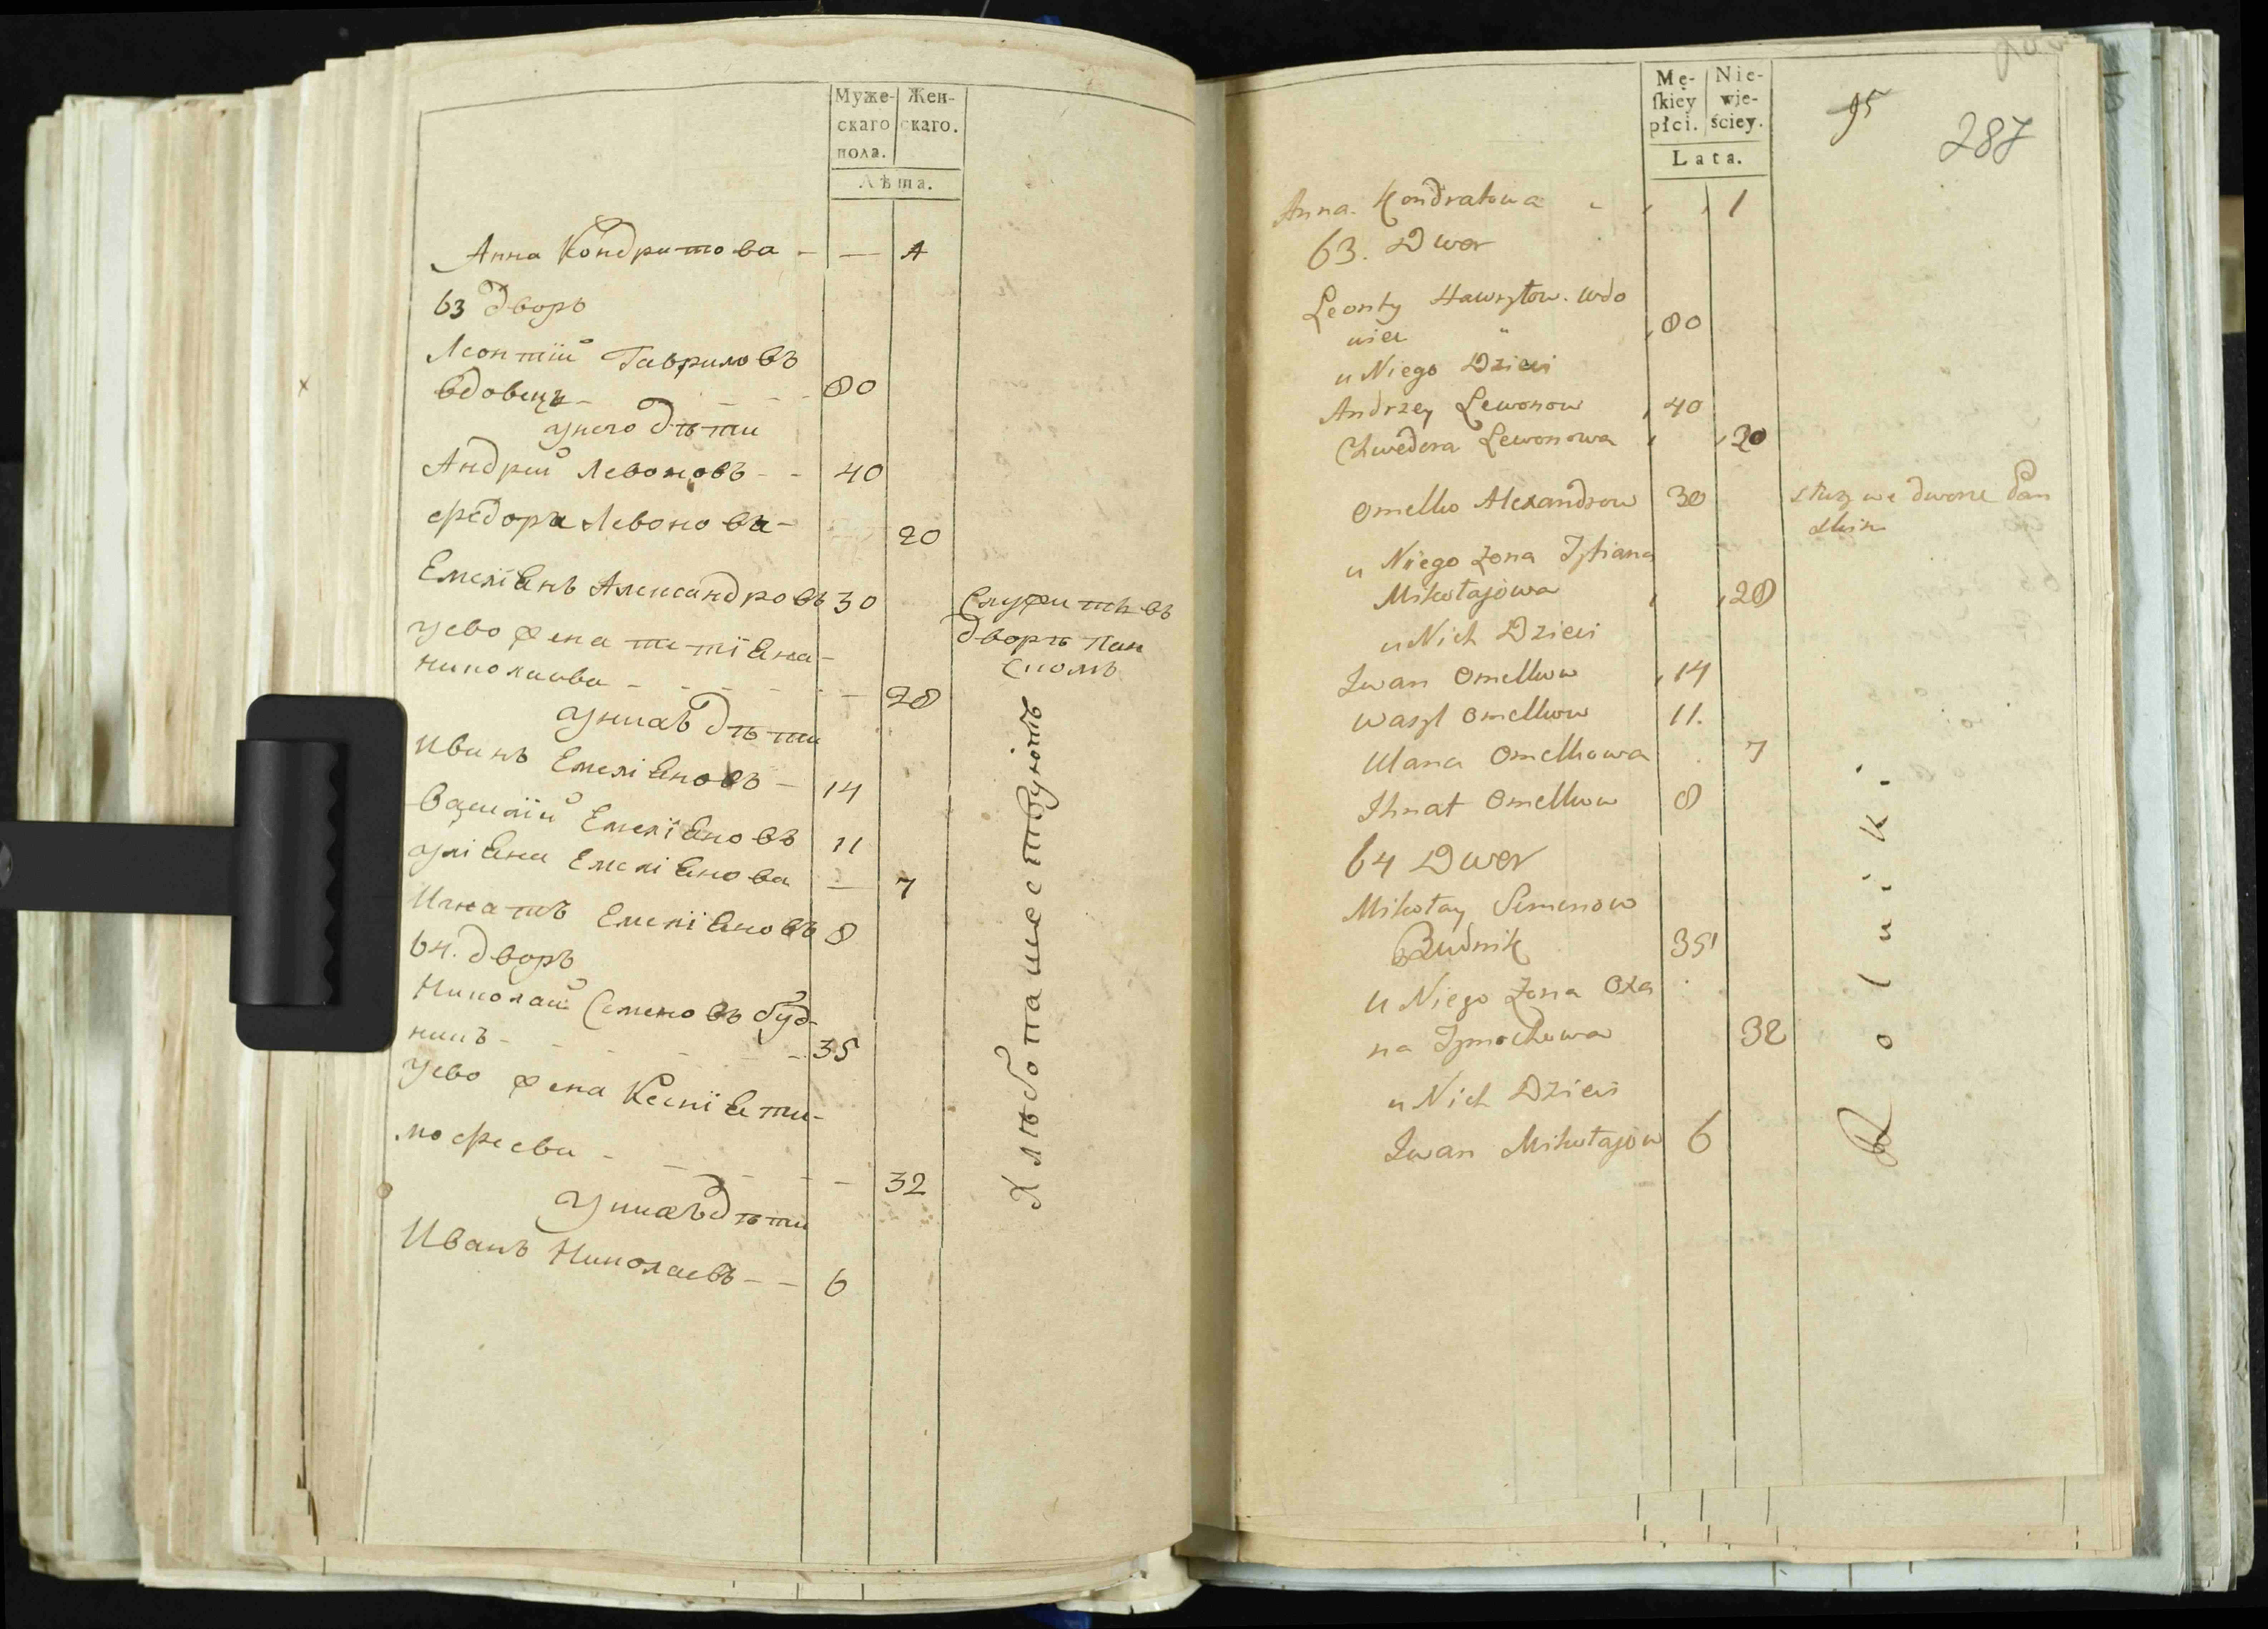 Муже-
скаго
пола.
Жен-
скаго.
Лѣта.
Анна Кондратова - — 1
63 дворъ
Леонтiй Гавриловъ
вдовецъ - - - - 80
унего дѣти
Андрей Левоновъ - - 40
Федора Левонова - 20
Емелiянъ Александровъ 30
Служитъ въ
дворѣ пан
скомъ
уево жена татiяна -
николаева - - - - - — 28
унихъ дѣти
Иванъ Емелiяновъ - 14
Василiй Емелiяновъ 11
улiяна Емелiянова — 7
Игнатъ Емелiяновъ 8
64. дворъ
Николай Семеновъ буд-
никъ - - - - - - 35
уево жена Ксенiя ти-
мофеева - - - - - - 32
унихъ дѣти
Иванъ Николаевъ - - 6
Хлѣбопашествуютъ
Mę-
ſkiey
płci.
Nie-
wie-
ściey.
Lata.
95
287
Anna Kondratowa 1
63. Dwor
Leonty Hawryłow. wdo
wiec 80
u Niego Dzieci
Andrzey Lewonow 40
Chwedora Lewonowa 20
Omelko Alexandrow 30
służy we dworze Pan
skim
u Niego Zona Tytiana
Mikołajowa 28
u Nich Dzieci
Iwan Omelkow 14
Wasyl Omelkow 11.
Ulana Omelkowa 7
Ihnat Omelkow 8
64 Dwor
Mikołay Semenow
Budnik 35
u Niego Zona Oxa
na Tymochowa 32
u Nich Dzieci
Iwan Mikołajow 6
Rolniki.